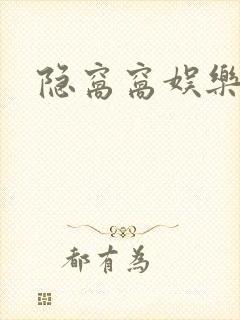 隐窝窝娱樂
都有为